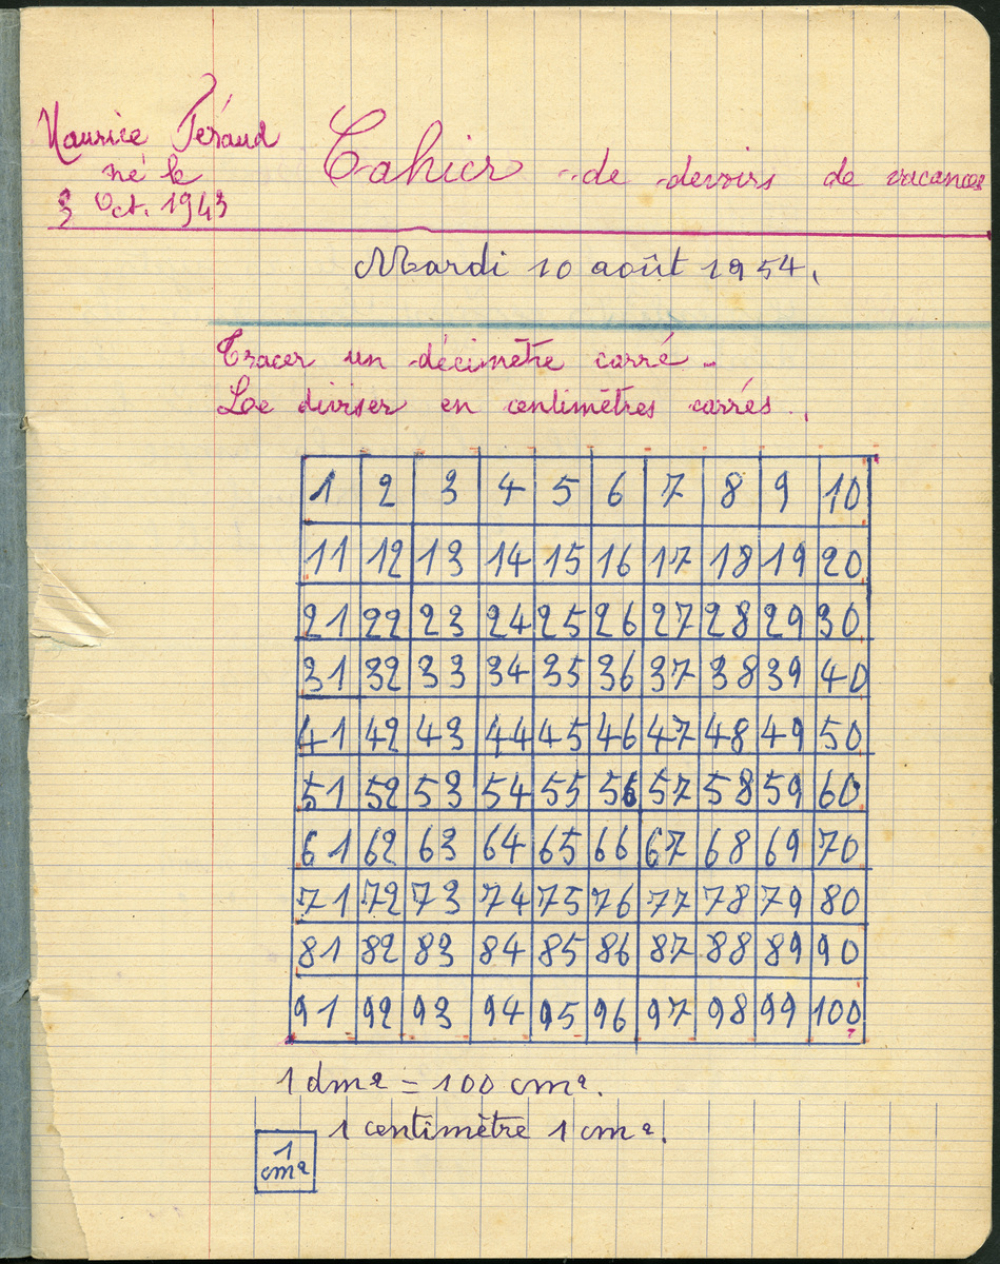 Maurice Féraud
né le
3 Oct. 1943
Cahier de devoirs de vacances
Mardi 10 août 1954.
Tracer un décimètre carré.
Le diviser en centimètres carrés.
1 2 3 4 5 6 7 8 9 10
11 12 13 14 15 16 17 18 19 20
21 22 23 24 25 26 27 28 29 30
31 32 33 34 35 36 37 38 39 40
41 42 43 44 45 46 47 48 49 50
51 52 53 54 55 56 57 58 59 60
61 62 63 64 65 66 67 68 69 70
71 72 73 74 75 76 77 78 79 80
81 82 83 84 85 86 87 88 89 90
91 92 93 94 95 96 97 98 99 100
1 dm² = 100 cm².
1 centimètre 1 cm².
1
cm²